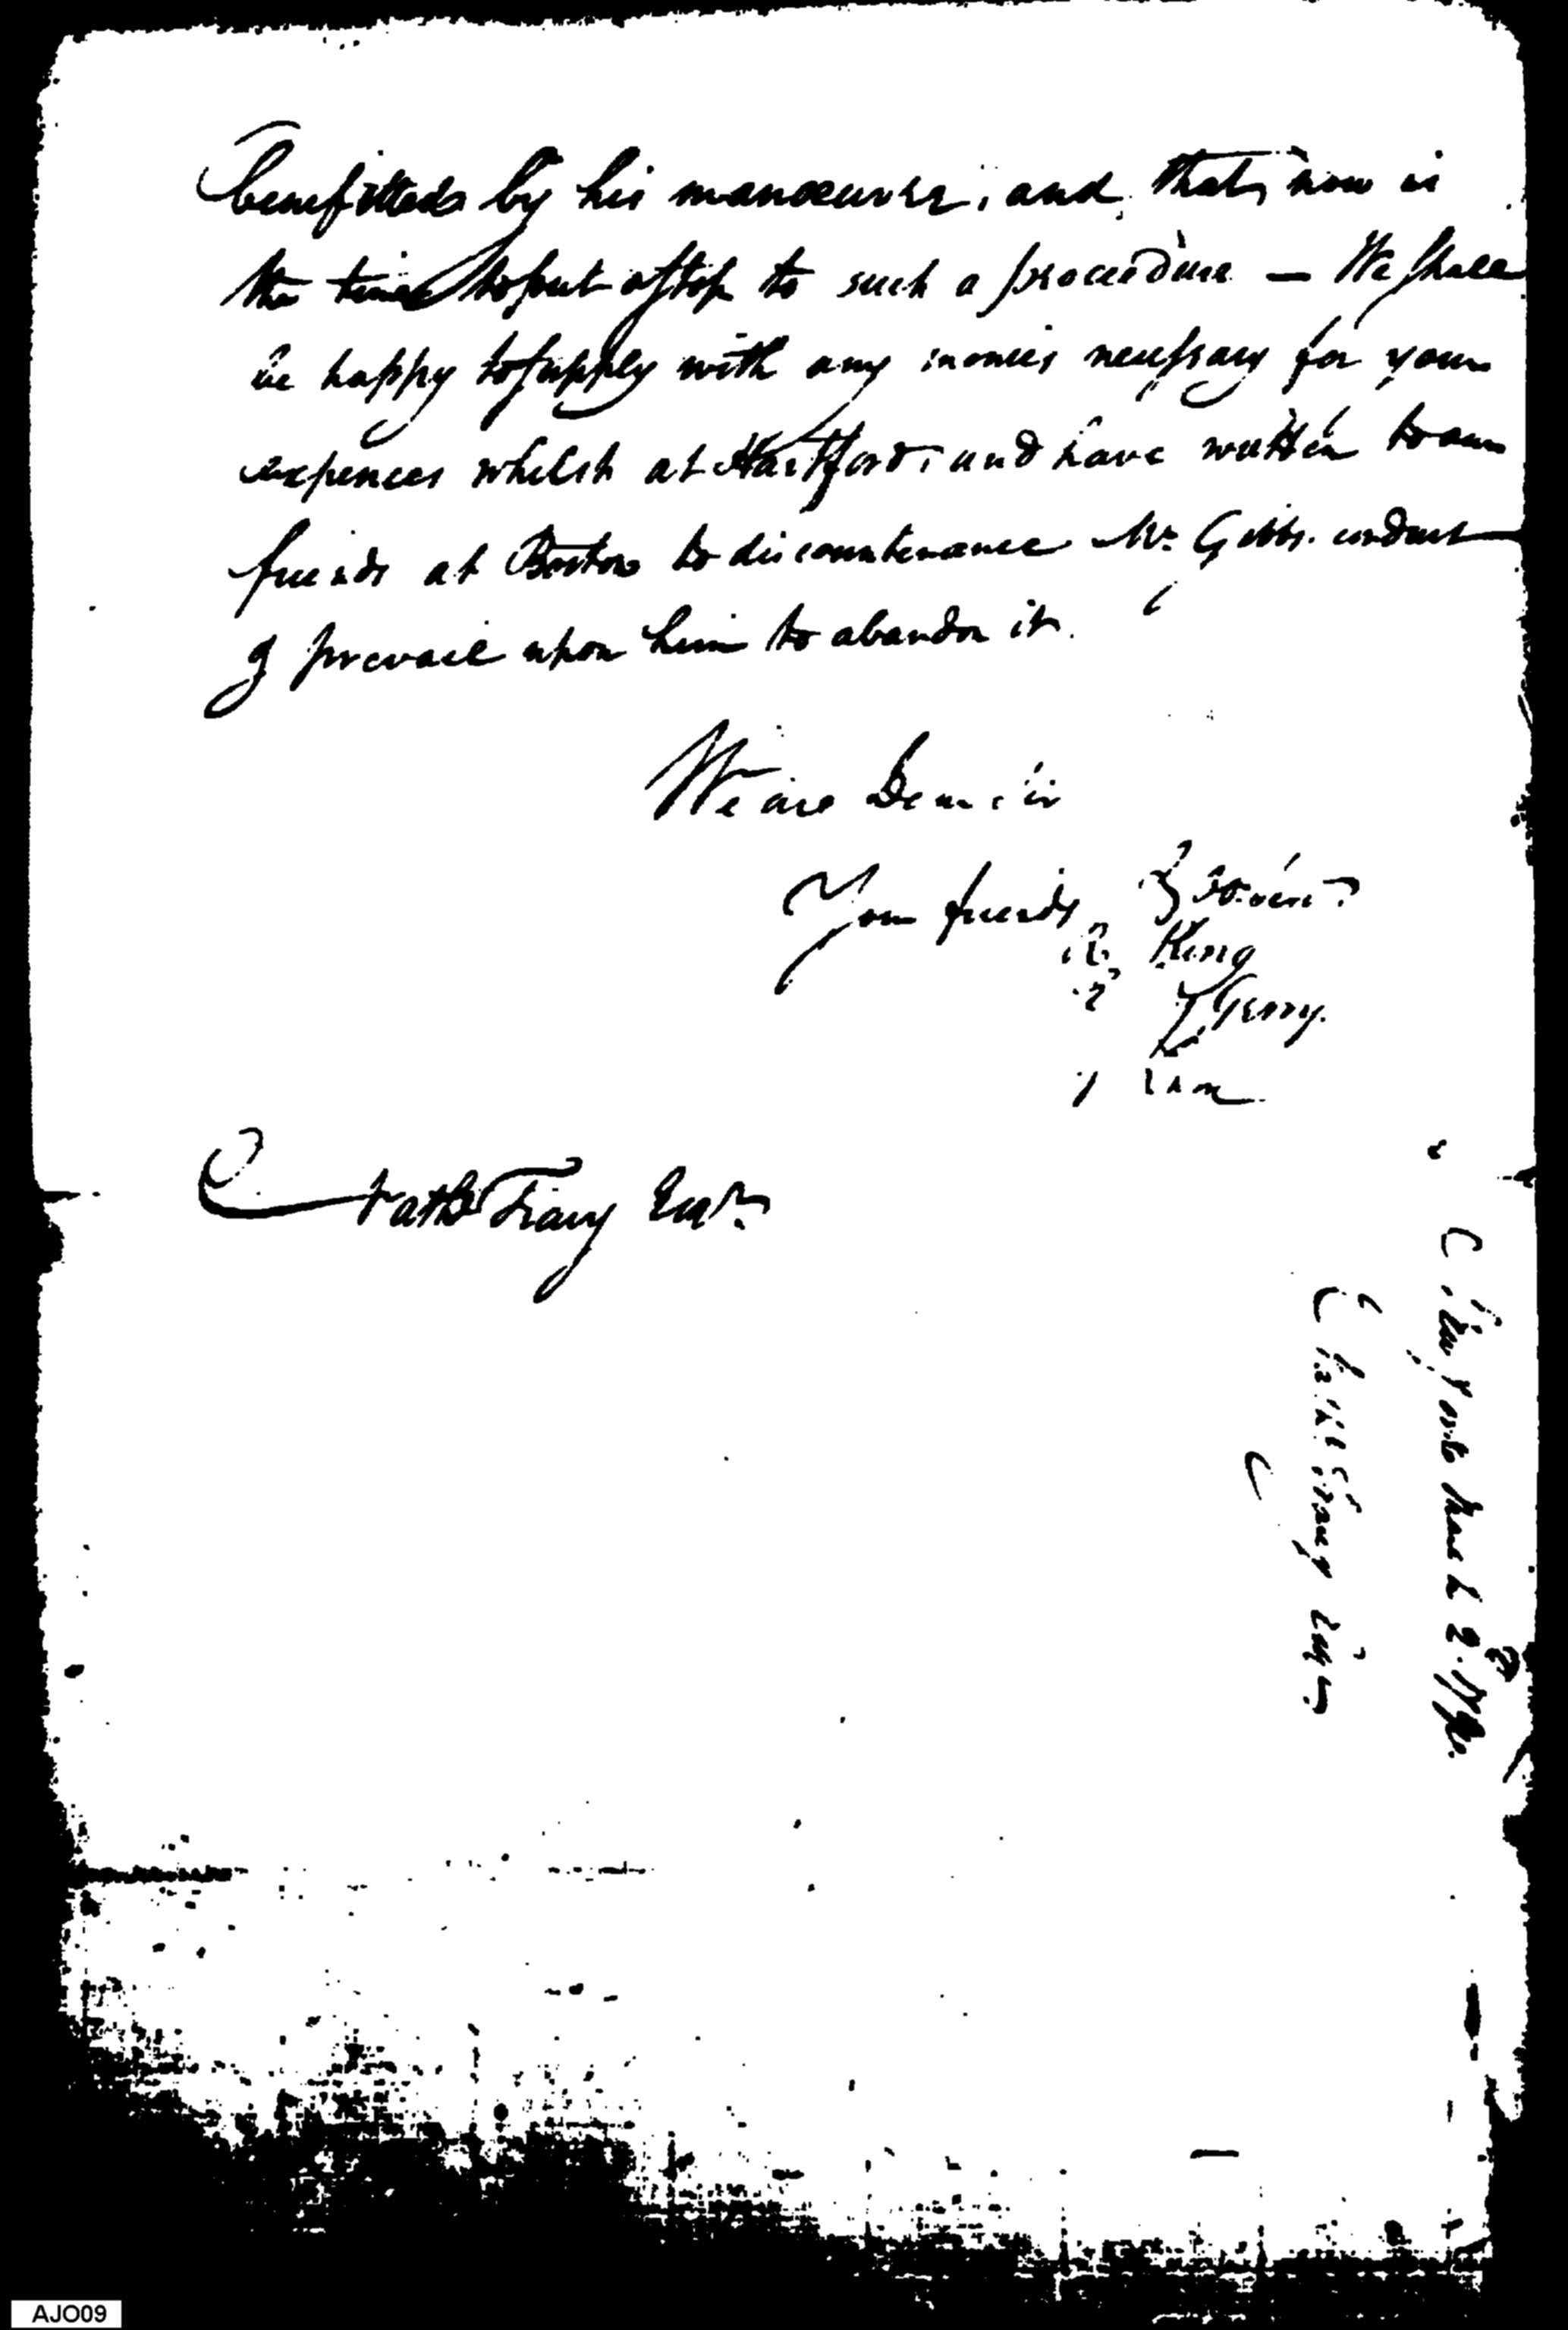 benefitted by his manœuvre, and, that now is
the time to put a stop to such a procedure — We shall
be happy to supply with any monies necessary for your
expences whilst at Hartford, and have written to our
friends at Boston to discountenance Mr. Gibbs. conduct
& prevail upon him to abandon it.
We are Dear Sir
Your friends
King
Gerry.
Nathl Tracy Esqr.
AJO09